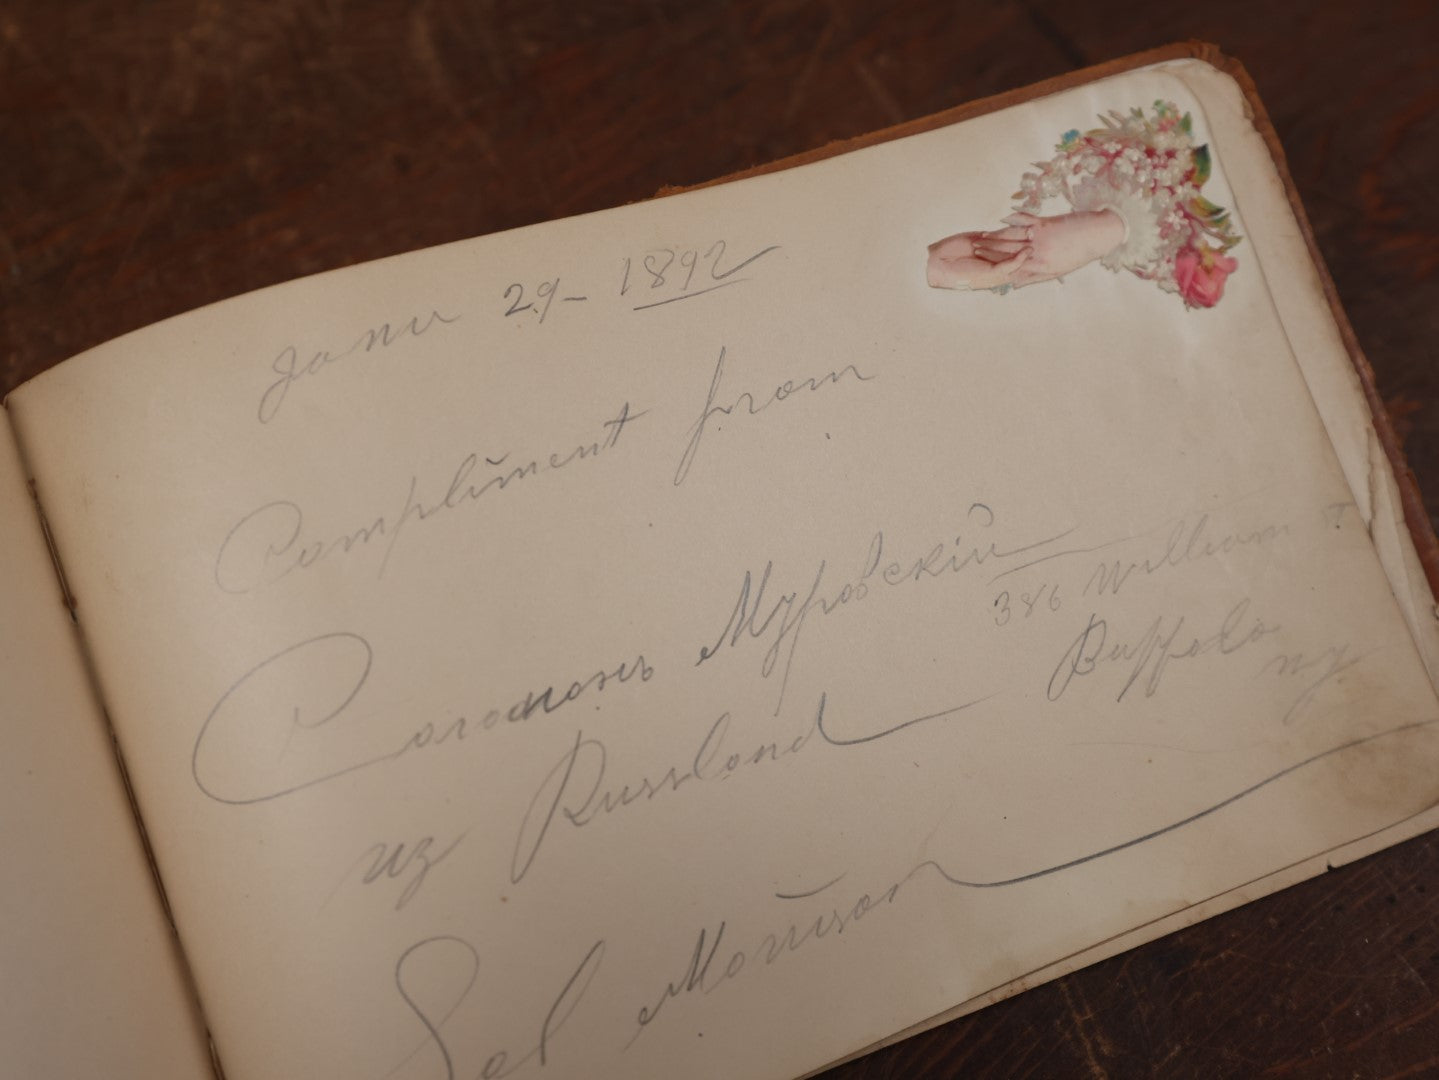 Janu 29- 1892
Compliment from
Соломонъ Муровскій
386 William st
из Russland
Buffalo
ny
Sol Morrison